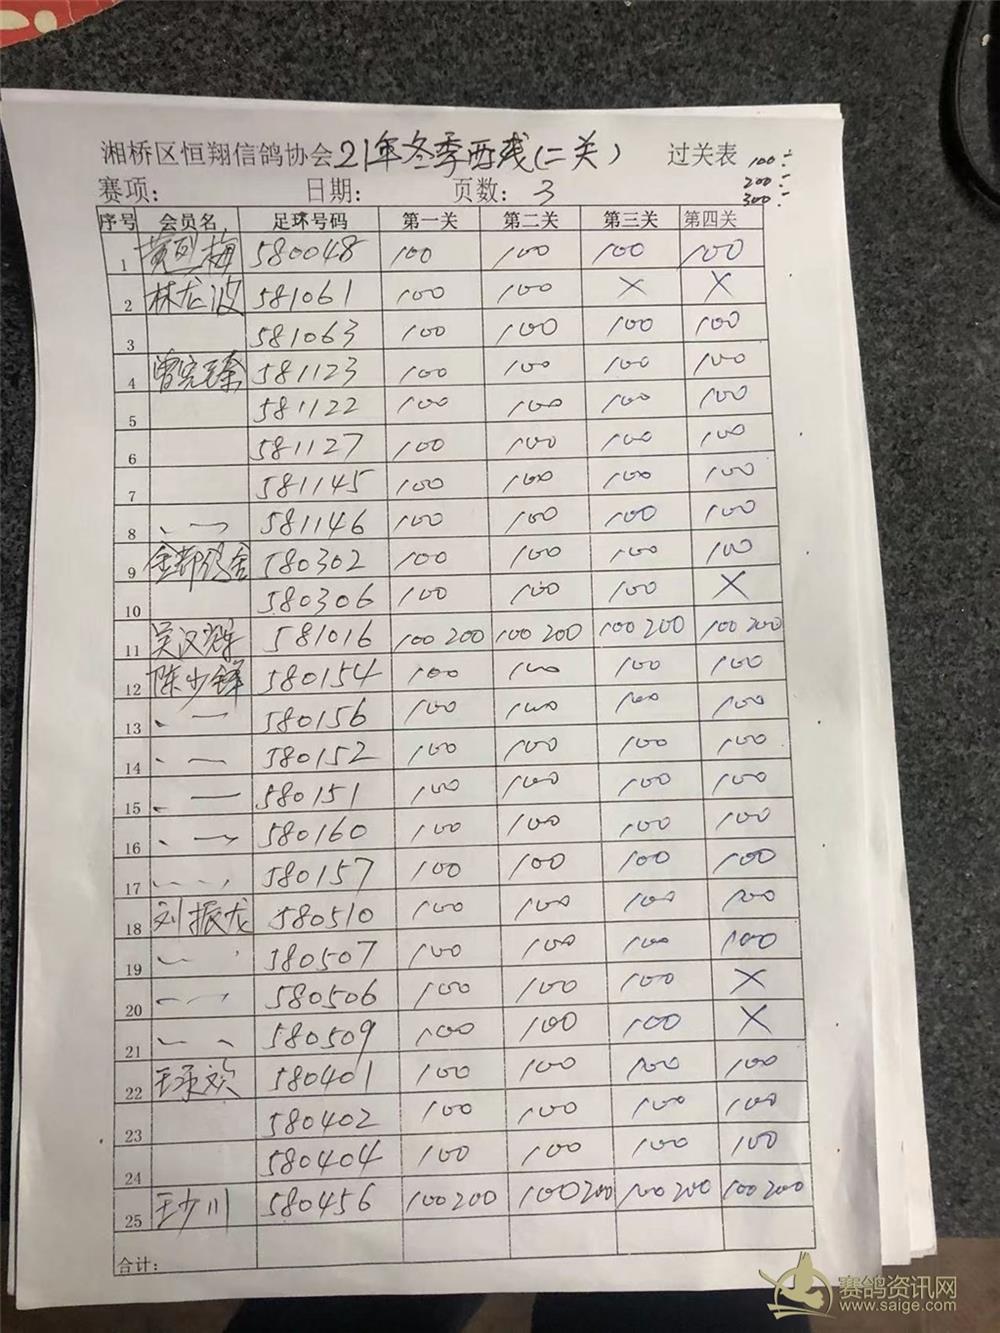 湘桥区恒翔信鸽协会21年冬季西线(二关) 过关表 100:
赛项: 日期: 页数: 3 200:
300:
序号 会员名 足球号码 第一关 第二关 第三关 第四关
1 黄烈梅 580048 100 100 100 100
2 林龙波 581061 100 100 × ×
3 581063 100 100 100 100
4 曾 581123 100 100 100 100
5 581122 100 100 100 100
6 581127 100 100 100 100
7 581145 100 100 100 100
8 581146 100 100 100 100
9 金都鸽舍 580302 100 100 100 100
10 580306 100 100 100 ×
11 吴汉辉 581016 100 200 100 200 100 200 100 200
12 陈少锋 580154 100 100 100 100
13 580156 100 100 100 100
14 580152 100 100 100 100
15 580151 100 100 100 100
16 580160 100 100 100 100
17 580157 100 100 100 100
18 刘振龙 580510 100 100 100 100
19 580507 100 100 100 100
20 580506 100 100 100 ×
21 580509 100 100 100 ×
22 王承欢 580401 100 100 100 100
23 580402 100 100 100 100
24 580404 100 100 100 100
25 王少川 580456 100 200 100 200 100 200 100 200
合计:
赛鸽资讯网
www.saige.com